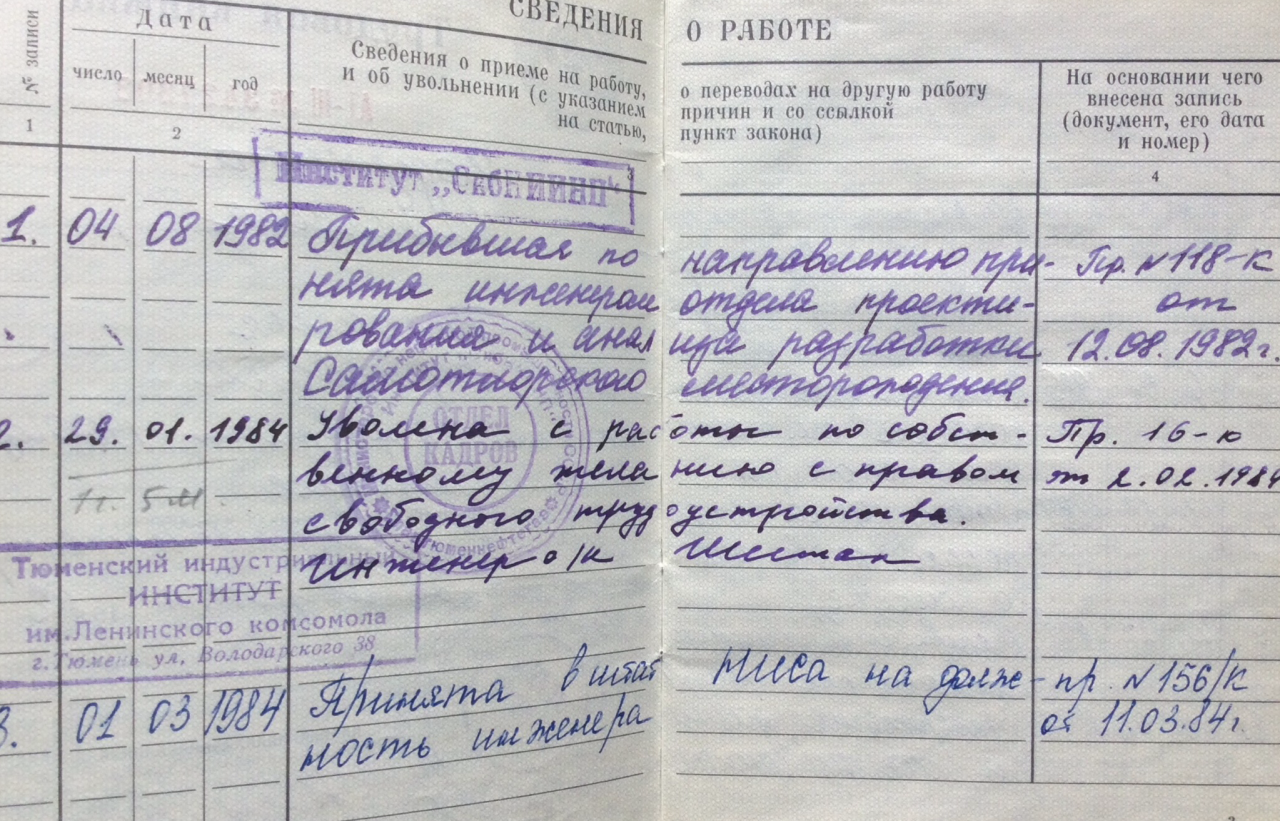 СВЕДЕНИЯ О РАБОТЕ
№ записи
Дата
число месяц год
Сведения о приеме на работу, о переводах на другую работу
и об увольнении (с указанием причин и со ссылкой
на статью, пункт закона)
На основании чего
внесена запись
(документ, его дата
и номер)
1 2 3 4
Институт „СибНИИНП"
1. 04 08 1982 Прибывшая по направлению при- Пр. № 118-к
нята инженером отдела проекти- от
рования и анализа разработки 12.08.1982г.
Самотлорского месторождения.
2. 29. 01. 1984 Уволена с работы по собст- Пр. 16-к
венному желанию с правом от 2.02.1984
1г. 5м.
свободного трудоустройства.
Инженер о/к
ОТДЕЛ
КАДРОВ
Тюменский индустриальный
ИНСТИТУТ
им.Ленинского комсомола
г.Тюмень ул, Володарского 38
3. 01 03 1984 Принята в штат НИСа на долж- пр. №156/к
ность инженера от 11.03.84г.